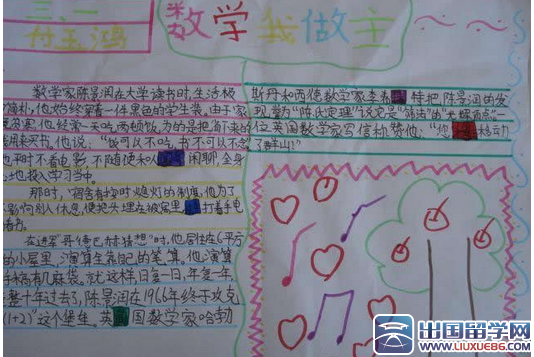 三、一
付玉鸿
数学我做主
数学家陈景润在大学读书时,生活极
简朴,他始终穿着一件黑色的学生装。由于家
他经常一天吃两顿饭,为的是把省下来的
钱用来买书。他说:"饭可以不吃,书不可以不念
他平时不看电影,不随便和人闲聊,全身
心地投入学习当中。
那时,宿舍有按时熄灯的制度,他为了
不影响别人休息,便把头埋在被窝里打着手电
看书。
在进军"哥德巴赫猜想"时,他居住在6平方
的小屋里,演算生靠自己的笔算。他演算
手稿有几麻袋。就这样,日复一日,年复一年,
整十年过去了,陈景润在1966年终于攻克
(1+2)"这个堡垒。英国数学家哈勃
斯丹和西德数学家李希特把陈景润的发
现誉为"陈氏定理",说它是"筛法"的"光辉顶点"一
位英国数学家写信称赞他:"您移动
了群山!"
出国留学网
WWW.LIUXUE86.COM